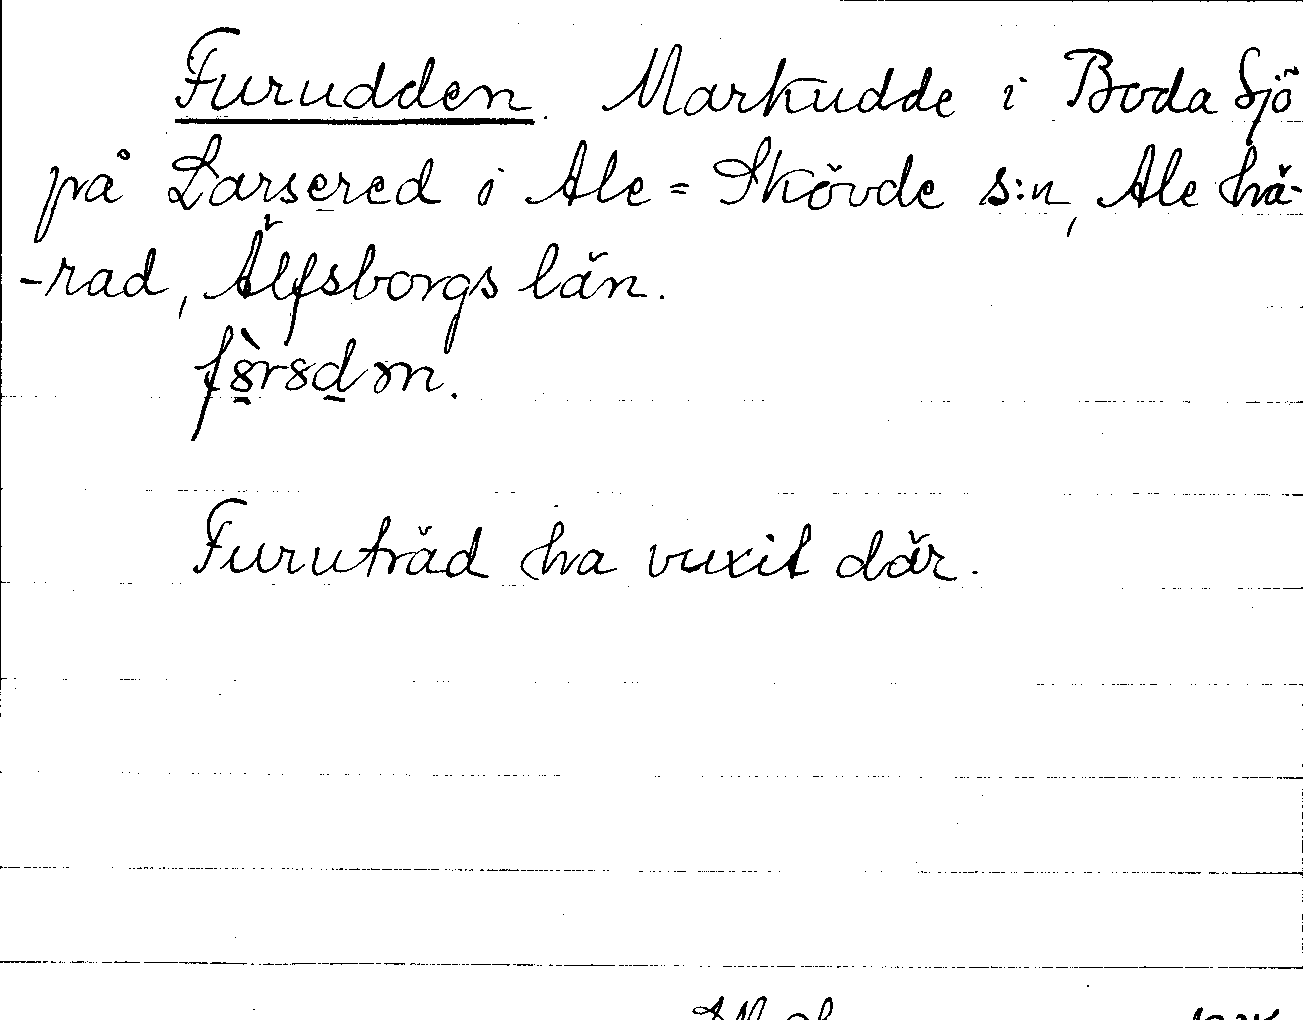 Furudden. Markudde i Boda Sjö
på Larsered i Ale=Skövde s:n, Ale hä-
-rad, Älfsborgs län.
Furuträd ha vuxit där.